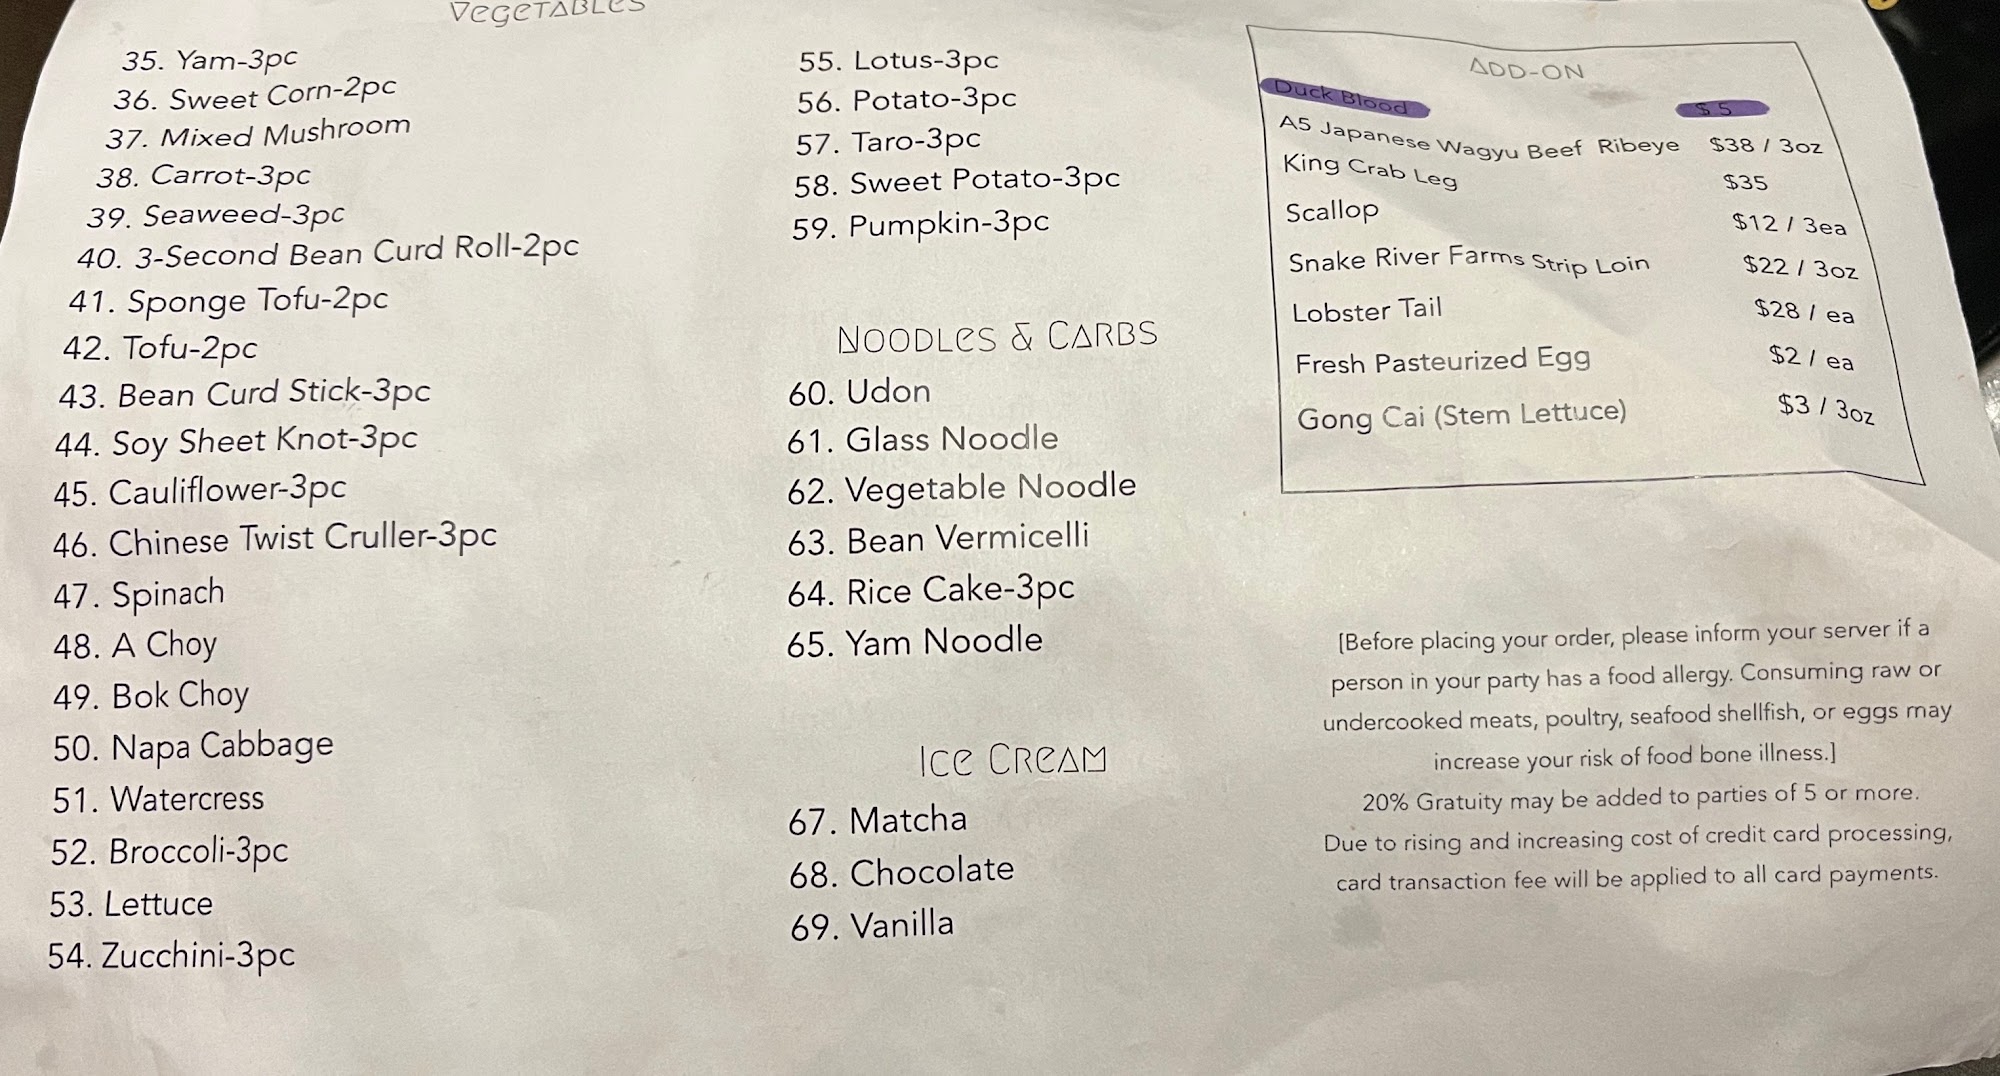 VEGETABLES
35. Yam-3pc
36. Sweet Corn-2pc
37. Mixed Mushroom
38. Carrot-3pc
39. Seaweed-3pc
40. 3-Second Bean Curd Roll-2pc
41. Sponge Tofu-2pc
42. Tofu-2pc
43. Bean Curd Stick-3pc
44. Soy Sheet Knot-3pc
45. Cauliflower-3pc
46. Chinese Twist Cruller-3pc
47. Spinach
48. A Choy
49. Bok Choy
50. Napa Cabbage
51. Watercress
52. Broccoli-3pc
53. Lettuce
54. Zucchini-3pc
55. Lotus-3pc
56. Potato-3pc
57. Taro-3pc
58. Sweet Potato-3pc
59. Pumpkin-3pc
NOODLES & CARBS
60. Udon
61. Glass Noodle
62. Vegetable Noodle
63. Bean Vermicelli
64. Rice Cake-3pc
65. Yam Noodle
ICE CREAM
67. Matcha
68. Chocolate
69. Vanilla
ADD-ON
Duck Blood $5
A5 Japanese Wagyu Beef Ribeye $38 / 3oz
King Crab Leg $35
Scallop $12 / 3ea
Snake River Farms Strip Loin $22 / 3oz
Lobster Tail $28 / ea
Fresh Pasteurized Egg $2 / ea
Gong Cai (Stem Lettuce) $3 / 3oz
[Before placing your order, please inform your server if a
person in your party has a food allergy. Consuming raw or
undercooked meats, poultry, seafood shellfish, or eggs may
increase your risk of food bone illness.]
20% Gratuity may be added to parties of 5 or more.
Due to rising and increasing cost of credit card processing,
card transaction fee will be applied to all card payments.